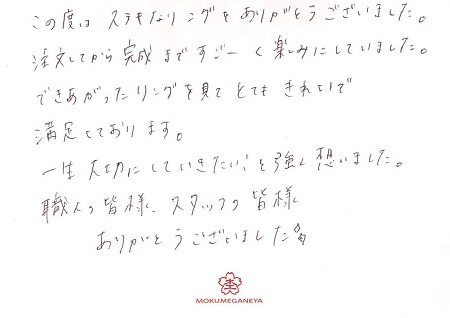 この度はステキなリングをありがとうございました。
注文してから完成まですごーく楽しみにしていました。
できあがったリングを見てとてもきれいで
満足しております。
一生大切にしていきたい！と強く想いました。
職人の皆様、スタッフの皆様
ありがとうございました
MOKUMEGANEYA